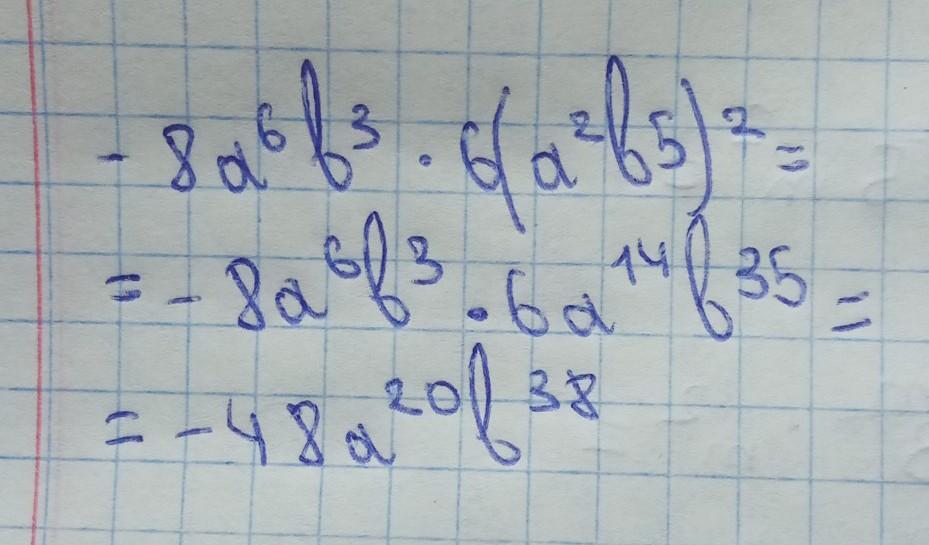 - 8a⁶b³ · 6(a²b5)² =
= - 8a⁶b³ · 6a¹⁴b³⁵ =
= - 48a²⁰b³⁸